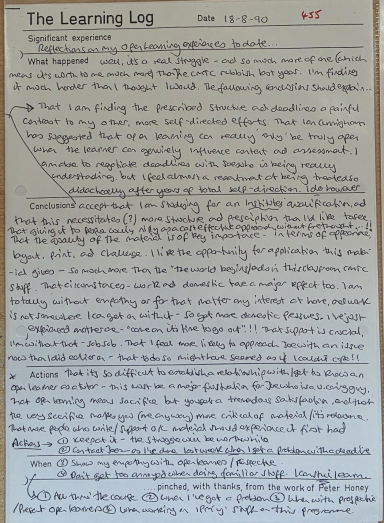 The Learning Log Date 18-8-90 455
Significant experience
Reflections on my Open Learning experiences to date...
What happened Well, it's a real struggle - and so much more of one (which
means it's worth to me much more) than the CMRC rubbish last year. I'm finding
it much harder than I thought I would. The following conclusions should explain...
→ That I am finding the prescribed structure and deadlines a painful
contrast to my other, more self-directed efforts. That Ian Cunningham
has suggested that open learning can really only be truly open
when the learner can genuinely influence content and assessment. I
am able to negotiate deadlines with who is being really
understanding, but I feel almost a resentment at being treated so
didactically after years of total self-direction. I do however
Conclusions accept that I am studying for an Institute qualification, and
that this necessitates (?) more structure and prescription than I'd like to see.
That giving it to people really is a cost effective approach, without ...!!
That the quality of the material is of key importance - in terms of appearance,
layout, print, and challenge. I like the opportunity for application this mat-
ial gives - so much more than the "the world begins/ends in this classroom" CMRC
stuff. That circumstances - work and domestic take a major effect too. I am
totally without empathy or for that matter any interest at home, and work
is not somewhere I can get on with it - so get more domestic pressures. I've just
explained another one - "come on it's time to go out"!! That support is crucial,
I'm without that - sob sob. That I feel more likely to approach Joe with an issue
now than I did earlier on - that to do so might have seemed as if I couldn't cope!!
* Actions That it's so difficult to establish a relationship with/get to know an
open learner as a tutor - this must be a major frustration for Joe who is a v. caring guy.
That open learning means sacrifice, but you get a tremendous satisfaction, and that
the very sacrifice makes you (me anyway) more critical of material/its relevance.
That more people who write/support OL material should experience it first hand
Actions → ① Keep at it - the struggle will be worthwhile
② Contact Joe as I've done last week when I get a problem with a deadline
When ③ Show my empathy with open learners/prospective
④ Don't get too annoyed when doing familiar stuff.
.... pinched, with thanks, from the work of Peter Honey
① All thro' the course ② When I've got a problem ③ When with prospective
/Present open learners ④ When working in 'stuff on this programme.